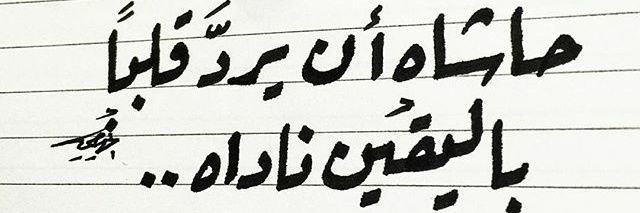 حاشاه أن يردَّ قلبًا
باليقين ناداه ..